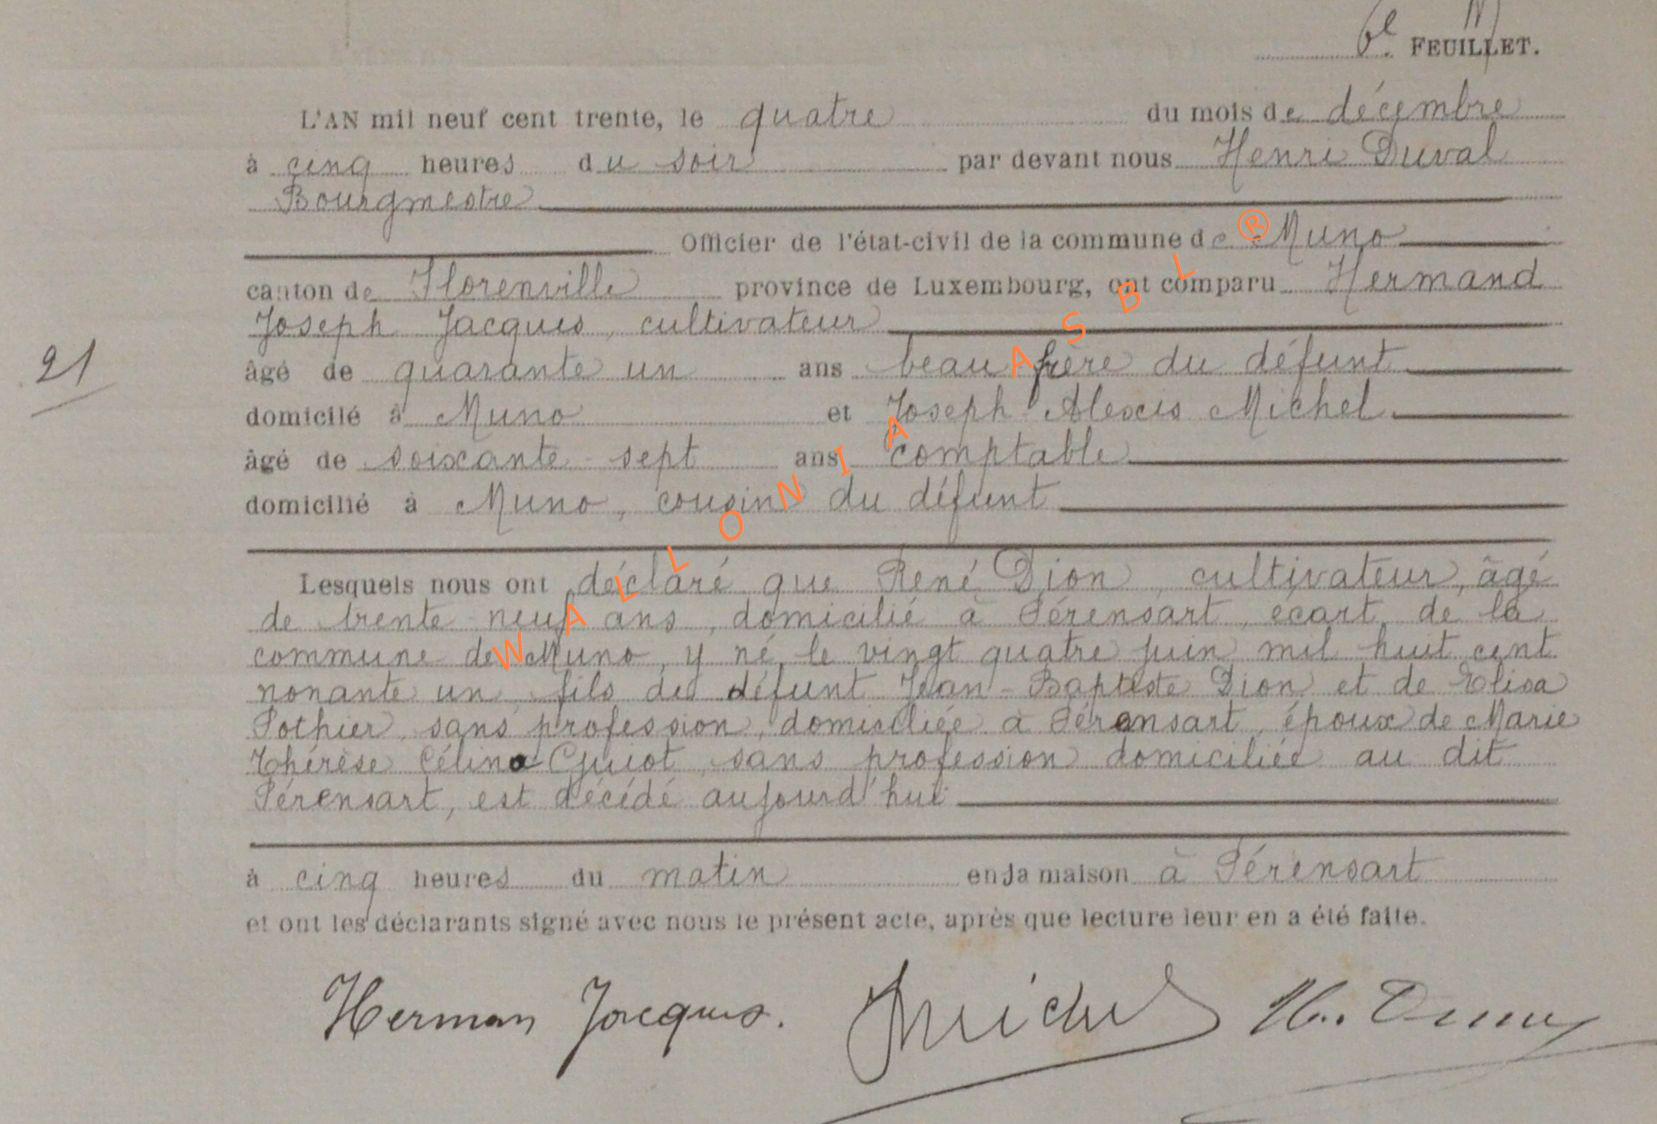 6e FEUILLET.
L'AN mil neuf cent trente, le quatre du mois de décembre
à cinq heures du soir par devant nous Henri Duval
Bourgmestre
Officier de l'état-civil de la commune de Muno
canton de Florenville province de Luxembourg, ont comparu Hermand
Joseph Jacques, cultivateur
21
âgé de quarante un ans beau frère du défunt
domicilé à Muno et Joseph Alexis Michel
âgé de soixante sept ans comptable
domicilié à Muno, cousin du défunt
Lesquels nous ont déclaré que René Dion, cultivateur, âgé
de trente neuf ans, domicilié à Férensart, écart de la
commune de Muno, y né, le vingt quatre juin mil huit cent
nonante un, fils du défunt Jean-Baptiste Dion et de Elisa
Pothier, sans profession, domiciliée à Férensart, époux de Marie
Thérèse Célina Guiot, sans profession domiciliée au dit
Férensart, est décédé aujourd'hui
à cinq heures du matin en la maison à Férensart
et ont les déclarants signé avec nous le présent acte, après que lecture leur en a été faite.
Herman Jacques. Michel H. Duval
WALLONIA ASBL ®